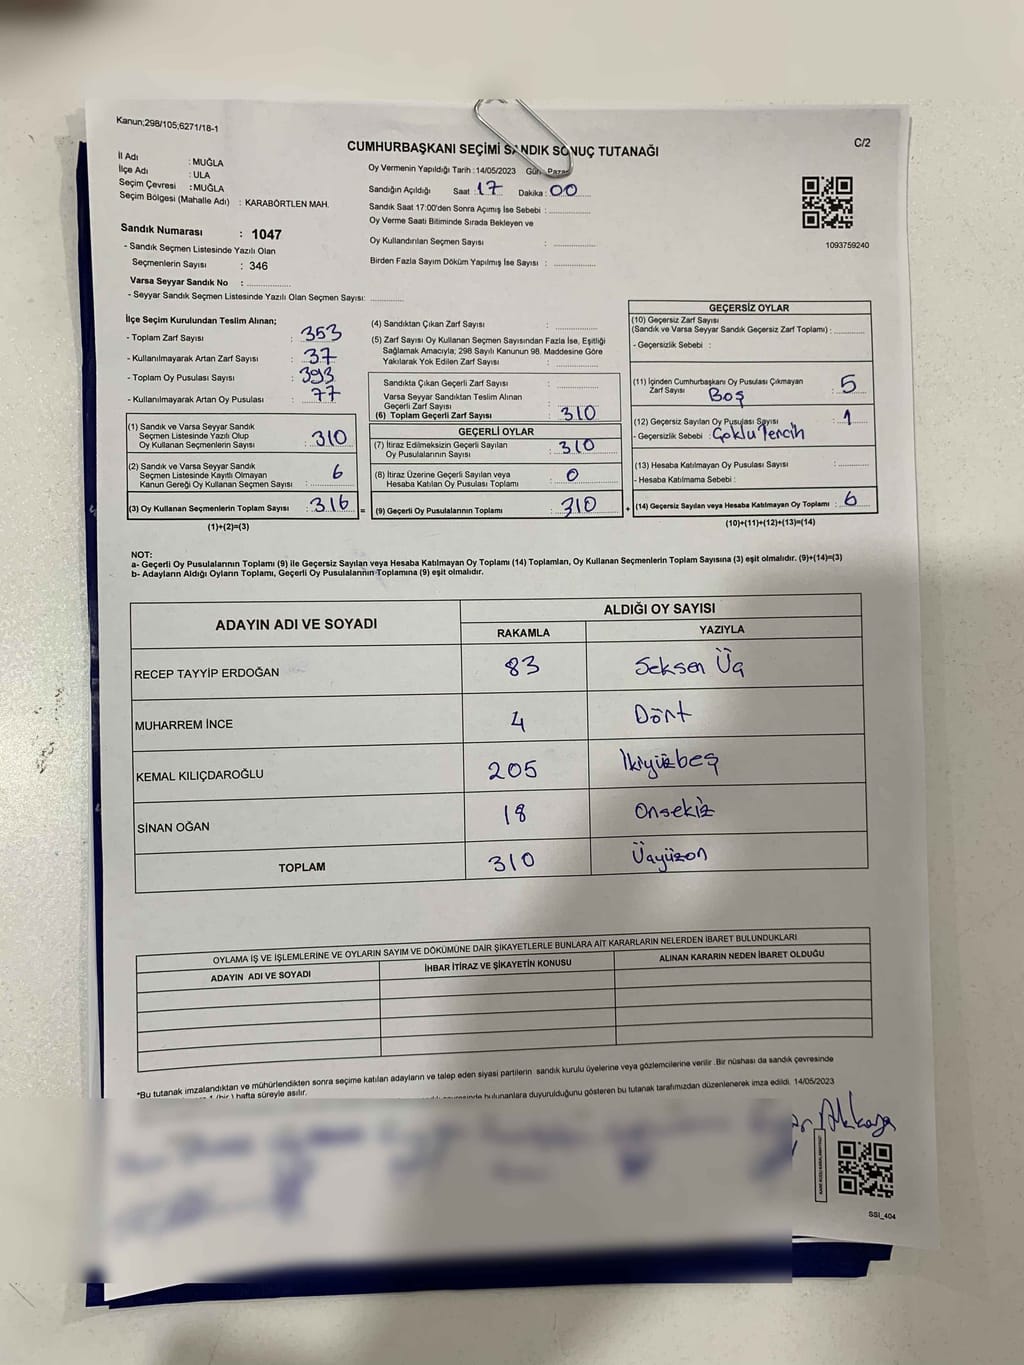 Kanun;298/105;6271/18-1
C/2
CUMHURBAŞKANI SEÇİMİ SANDIK SONUÇ TUTANAĞI
İl Adı : MUĞLA
İlçe Adı : ULA
Seçim Çevresi : MUĞLA
Seçim Bölgesi (Mahalle Adı) : KARABÖRTLEN MAH.
Oy Vermenin Yapıldığı Tarih : 14/05/2023 Gün: Pazar
Sandığın Açıldığı Saat : 17 Dakika : 00
Sandık Saat 17:00'den Sonra Açımış İse Sebebi :
Oy Verme Saati Bitiminde Sırada Bekleyen ve
Oy Kullandırılan Seçmen Sayısı :
Birden Fazla Sayım Döküm Yapılmış İse Sayısı :
1093759240
Sandık Numarası : 1047
- Sandık Seçmen Listesinde Yazılı Olan
Seçmenlerin Sayısı : 346
Varsa Seyyar Sandık No :
- Seyyar Sandık Seçmen Listesinde Yazılı Olan Seçmen Sayısı:
İlçe Seçim Kurulundan Teslim Alınan;
- Toplam Zarf Sayısı : 353
- Kullanılmayarak Artan Zarf Sayısı : 37
- Toplam Oy Pusulası Sayısı : 393
- Kullanılmayarak Artan Oy Pusulası : 77
(1) Sandık ve Varsa Seyyar Sandık
Seçmen Listesinde Yazılı Olup
Oy Kullanan Seçmenlerin Sayısı : 310
(2) Sandık ve Varsa Seyyar Sandık
Seçmen Listesinde Kayıtlı Olmayan
Kanun Gereği Oy Kullanan Seçmen Sayısı : 6
(3) Oy Kullanan Seçmenlerin Toplam Sayısı : 316 =
(1)+(2)=(3)
(4) Sandıktan Çıkan Zarf Sayısı :
(5) Zarf Sayısı Oy Kullanan Seçmen Sayısından Fazla İse, Eşitliği
Sağlamak Amacıyla; 298 Sayılı Kanunun 98. Maddesine Göre
Yakılarak Yok Edilen Zarf Sayısı :
Sandıkta Çıkan Geçerli Zarf Sayısı :
Varsa Seyyar Sandıktan Teslim Alınan
Geçerli Zarf Sayısı :
(6) Toplam Geçerli Zarf Sayısı : 310
GEÇERLİ OYLAR
(7) İtiraz Edilmeksizin Geçerli Sayılan
Oy Pusulalarının Sayısı : 310
(8) İtiraz Üzerine Geçerli Sayılan veya
Hesaba Katılan Oy Pusulası Toplamı : 0
(9) Geçerli Oy Pusulalarının Toplamı : 310 +
GEÇERSİZ OYLAR
(10) Geçersiz Zarf Sayısı
(Sandık ve Varsa Seyyar Sandık Geçersiz Zarf Toplamı) :
- Geçersizlik Sebebi :
(11) İçinden Cumhurbaşkanı Oy Pusulası Çıkmayan
Zarf Sayısı : 5
Boş
(12) Geçersiz Sayılan Oy Pusulası Sayısı : 1
- Geçersizlik Sebebi : Çoklu Tercih
(13) Hesaba Katılmayan Oy Pusulası Sayısı :
- Hesaba Katılmama Sebebi :
(14) Geçersiz Sayılan veya Hesaba Katılmayan Oy Toplamı : 6
(10)+(11)+(12)+(13)=(14)
NOT:
a- Geçerli Oy Pusulalarının Toplamı (9) ile Geçersiz Sayılan veya Hesaba Katılmayan Oy Toplamı (14) Toplamları, Oy Kullanan Seçmenlerin Toplam Sayısına (3) eşit olmalıdır. (9)+(14)=(3)
b- Adayların Aldığı Oyların Toplamı, Geçerli Oy Pusulalarının Toplamına (9) eşit olmalıdır.
ADAYIN ADI VE SOYADI ALDIĞI OY SAYISI
RAKAMLA YAZIYLA
RECEP TAYYİP ERDOĞAN 83 Seksen Üç
MUHARREM İNCE 4 Dört
KEMAL KILIÇDAROĞLU 205 İkiyüzbeş
SİNAN OĞAN 18 Onsekiz
TOPLAM 310 Üçyüzon
OYLAMA İŞ VE İŞLEMLERİNE VE OYLARIN SAYIM VE DÖKÜMÜNE DAİR ŞİKAYETLERLE BUNLARA AİT KARARLARIN NELERDEN İBARET BULUNDUKLARI
ADAYIN ADI VE SOYADI İHBAR İTİRAZ VE ŞİKAYETİN KONUSU ALINAN KARARIN NEDEN İBARET OLDUĞU
*Bu tutanak imzalandıktan ve mühürlendikten sonra seçime katılan adayların ve talep eden siyasi partilerin sandık kurulu üyelerine veya gözlemcilerine verilir .Bir nüshası da sandık çevresinde
hafta süreyle asılır.
bulunanlara duyurulduğunu gösteren bu tutanak tarafımızdan düzenlenerek imza edildi. 14/05/2023
SSI_404